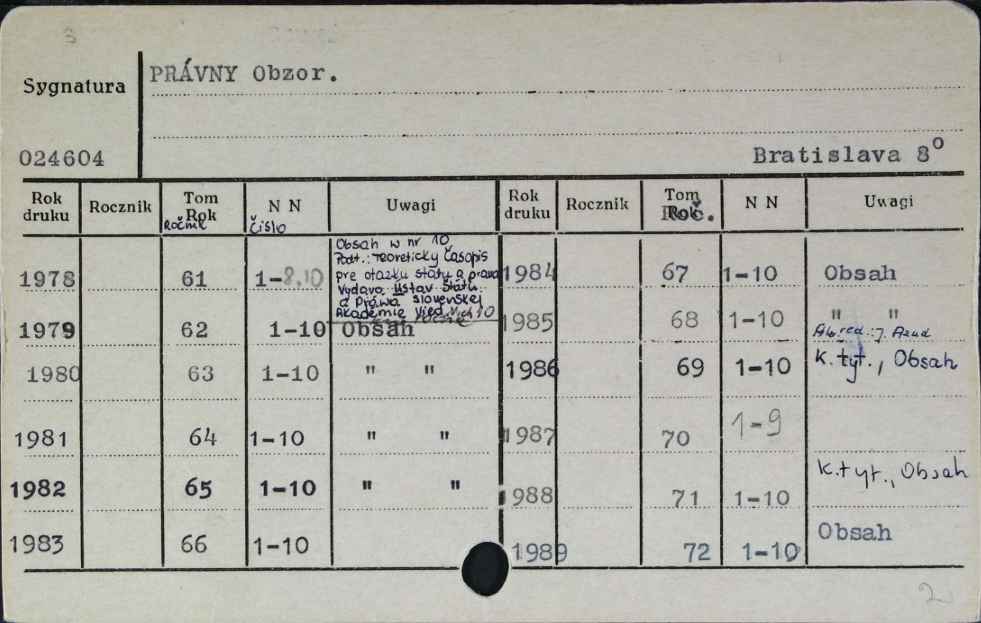 3
PRÁVNY Obzor.
Sygnatura
024604
Bratislava 8°
Rok druku Rocznik Tom Rok N N Uwagi Rok druku Rocznik Tom N N Uwagi
Ročník Číslo Roč.
Obsah w nr 10
Podt.: Teoretický Časopis
pre otazku statu a prava
Vydava Ústav Štátu
a Práwa Slovenskej
Akadémie Vied
1978 61 1-8,10 1984 67 1-10 Obsah
1979 62 1-10 Obsah 1985 68 1-10 " "
red.: J. Azud
1980 63 1-10 " " 1986 69 1-10 K. tyt., Obsah
1981 64 1-10 " " 1987 70 1-9
1982 65 1-10 " " 1988 71 1-10 K. tyt., Obsah
1983 66 1-10 1989 72 1-10 Obsah
2